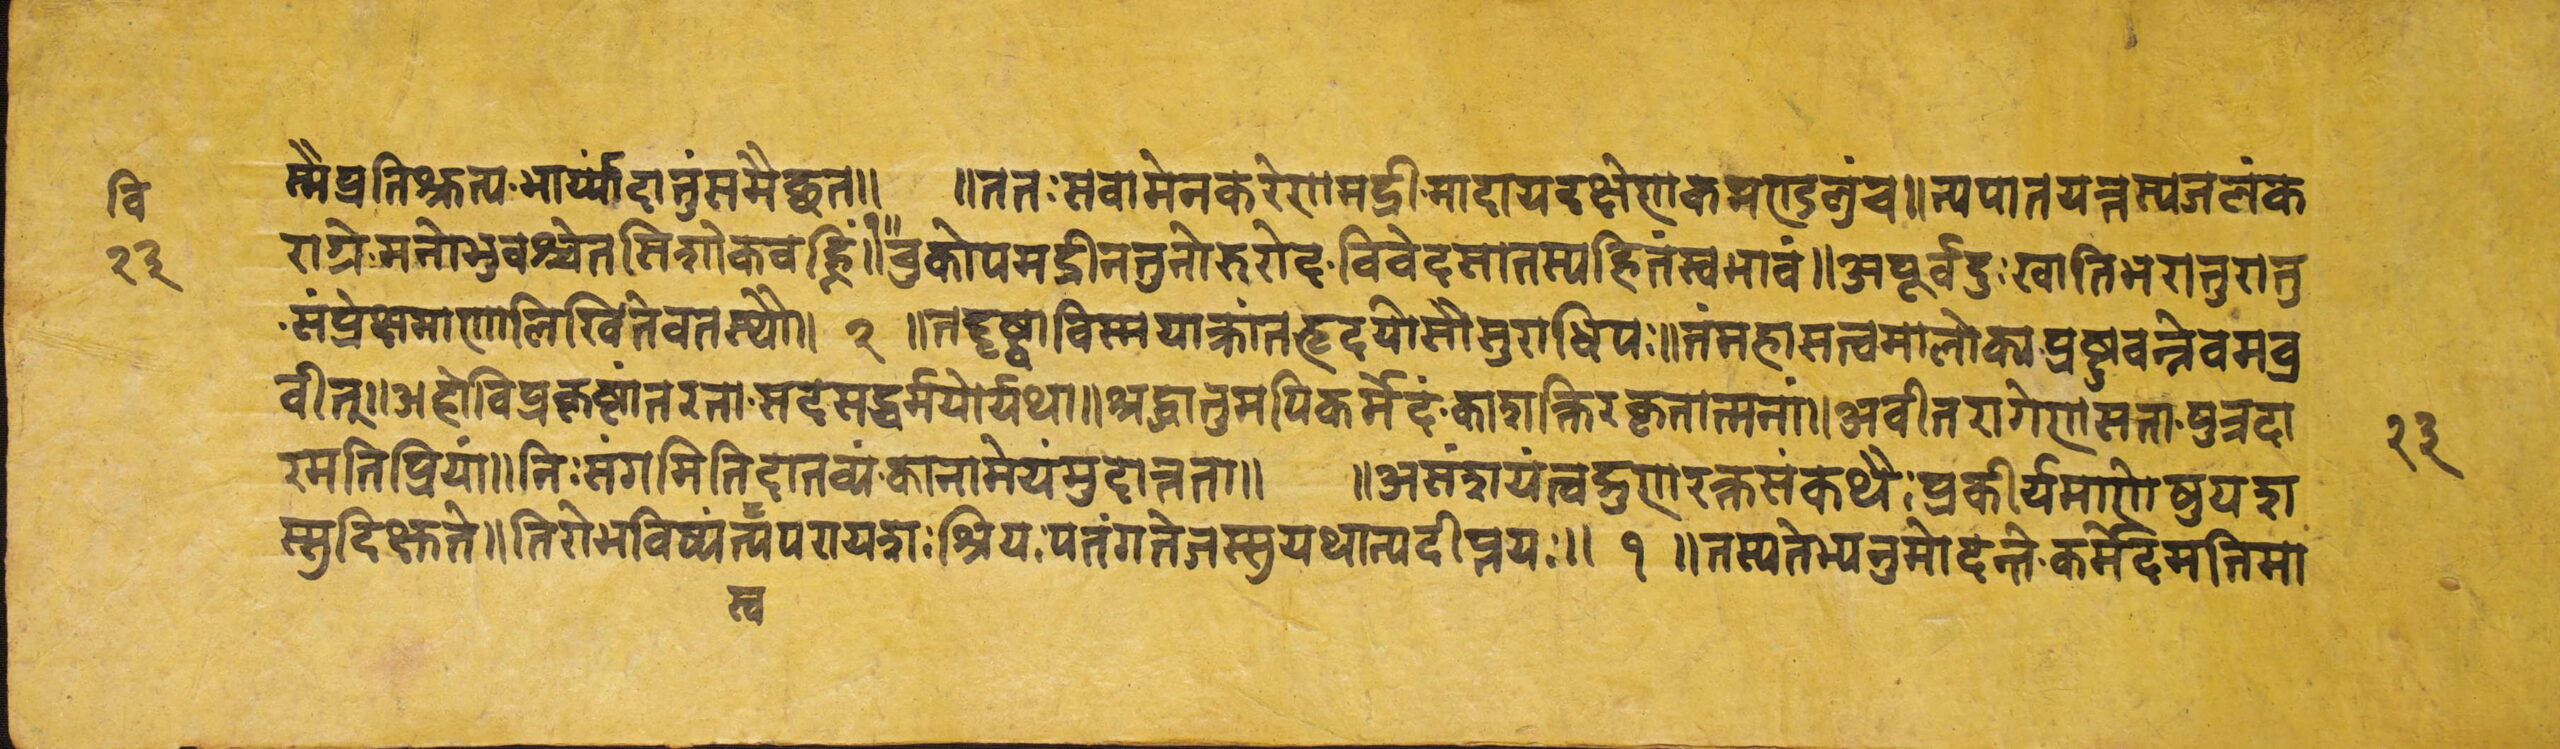 वि
२३
स्मै प्रतिश्रुत्य भार्य्यां दातुं समैच्छत॥ ॥ततः स वामेन करेण मद्री मादाय दक्षेण कमण्डलुं च॥ न्यपातयत्तस्य जलं क
राग्रे मनोभुवश्चेतसि शोकवह्निं॥ चुकोप मद्री न तु नो रुरोद विवेद सा तस्य हि तं स्वभावं॥ अपूर्वदुःखातिभरातुरा तु
संप्रेक्षमाणा लिखितेव तस्थौ॥ २ ॥तद्दृष्ट्वा विस्मयाक्रांतहृदयोसौ सुराधिपः॥ तं महासत्वमालोक्य प्रष्टुवन्नेवमब्र
वीत्॥ अहो विप्रकृष्टांतरता सदसद्धर्मयोर्यथा॥ श्रद्धातुमपि कर्मेदं का शक्तिरकृतात्मनां॥ अवीतरागेण सता पुत्रदा
रमतिप्रियां॥ निःसंगमिति दातव्यं का नामेयं मुदात्तता॥ ॥असंशयं त्वद्गुणरक्तसंकथैः प्रकीर्यमाणेषु यश
स्सु दिक्षु ते॥ तिरोभविष्यंत्यपरा यशःश्रियः पतंगतेजस्सु यथान्यदीप्तयः॥ १ ॥तस्य तेभ्यनुमोदन्ते कर्मेदमतिमा
स्व
२३